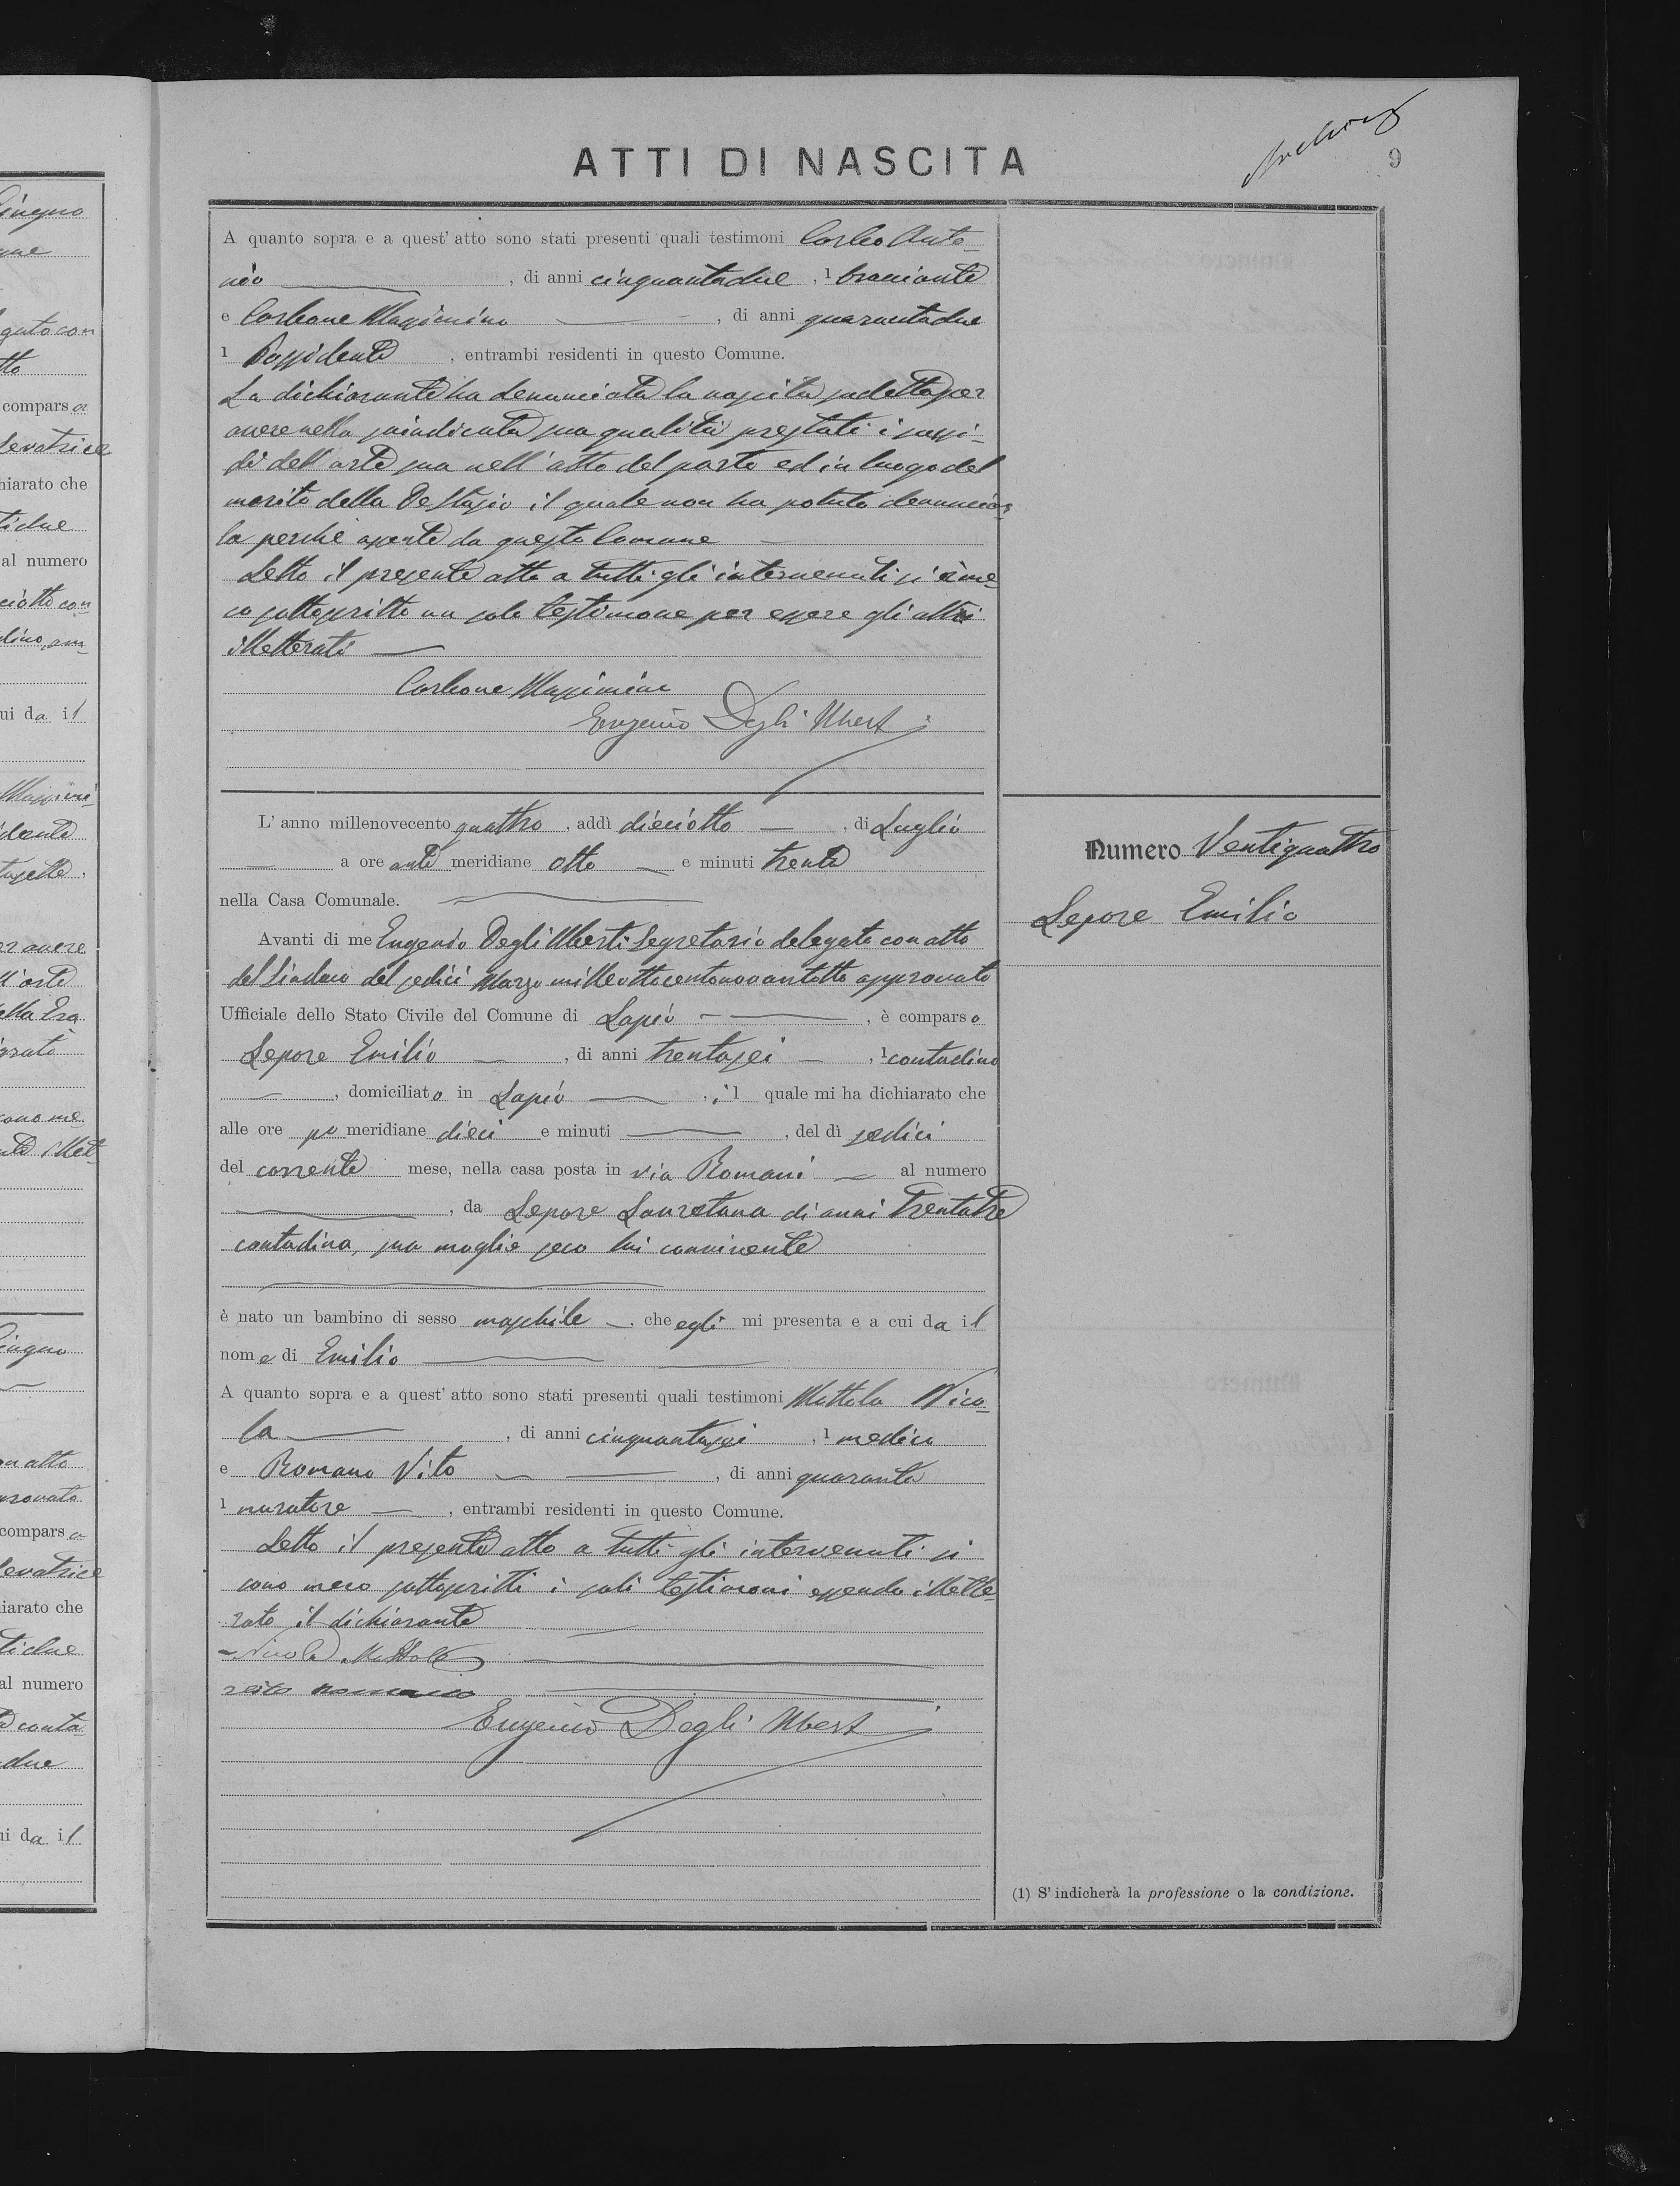 ATTI DI NASCITA
9
A quanto sopra e a quest'atto sono stati presenti quali testimoni Carleo Anto-
nio, di anni cinquantadue, 1 bracciante
e Carbone Massimino, di anni quarantadue
1 Possidente, entrambi residenti in questo Comune.
La dichiarante ha denunciata la nascita sudetta per
avere nella suindicata sua qualità prestati i sussi-
di dell'arte sua nell'atto del parto ed in luogo del
marito della De Stasio il quale non ha potuto denunciar
la perchè assente da questo Comune
Letto il presente atto a tutti gli intervenuti si è me
co sottoscritto un solo testimone per essere gli altri
illetterati
Carbone Massimino
Eugenio Degli Uberti
L'anno millenovecento quattro, addì dieciotto, di Luglio
a ore anti meridiane otto e minuti trenta
nella Casa Comunale.
Avanti di me Eugenio Degli Uberti Segretario delegato con atto
del Sindaco del sedici Marzo milleottocentonovantotto approvato
Ufficiale dello Stato Civile del Comune di Lapio, è comparso
Lepore Emilio, di anni trentasei, 1 contadino
, domiciliato in Lapio, il quale mi ha dichiarato che
alle ore po meridiane dieci e minuti, del dì sedici
del corrente mese, nella casa posta in via Romani al numero
, da Lepore Lauretana di anni trentatre
contadina, sua moglie seco lui convivente
è nato un bambino di sesso maschile, che egli mi presenta e a cui da il
nome di Emilio
A quanto sopra e a quest'atto sono stati presenti quali testimoni Mottola Nico-
la, di anni cinquantasei, 1 medico
e Romano Vito, di anni quaranta
1 muratore, entrambi residenti in questo Comune.
Letto il presente atto a tutti gli intervenuti si
sono meco sottoscritti i soli testimoni essendo illette-
rato il dichiarante
Nicola Mottola
Vito Romano
Eugenio Degli Uberti
Numero Ventiquattro
Lepore Emilio
(1) S'indicherà la professione o la condizione.